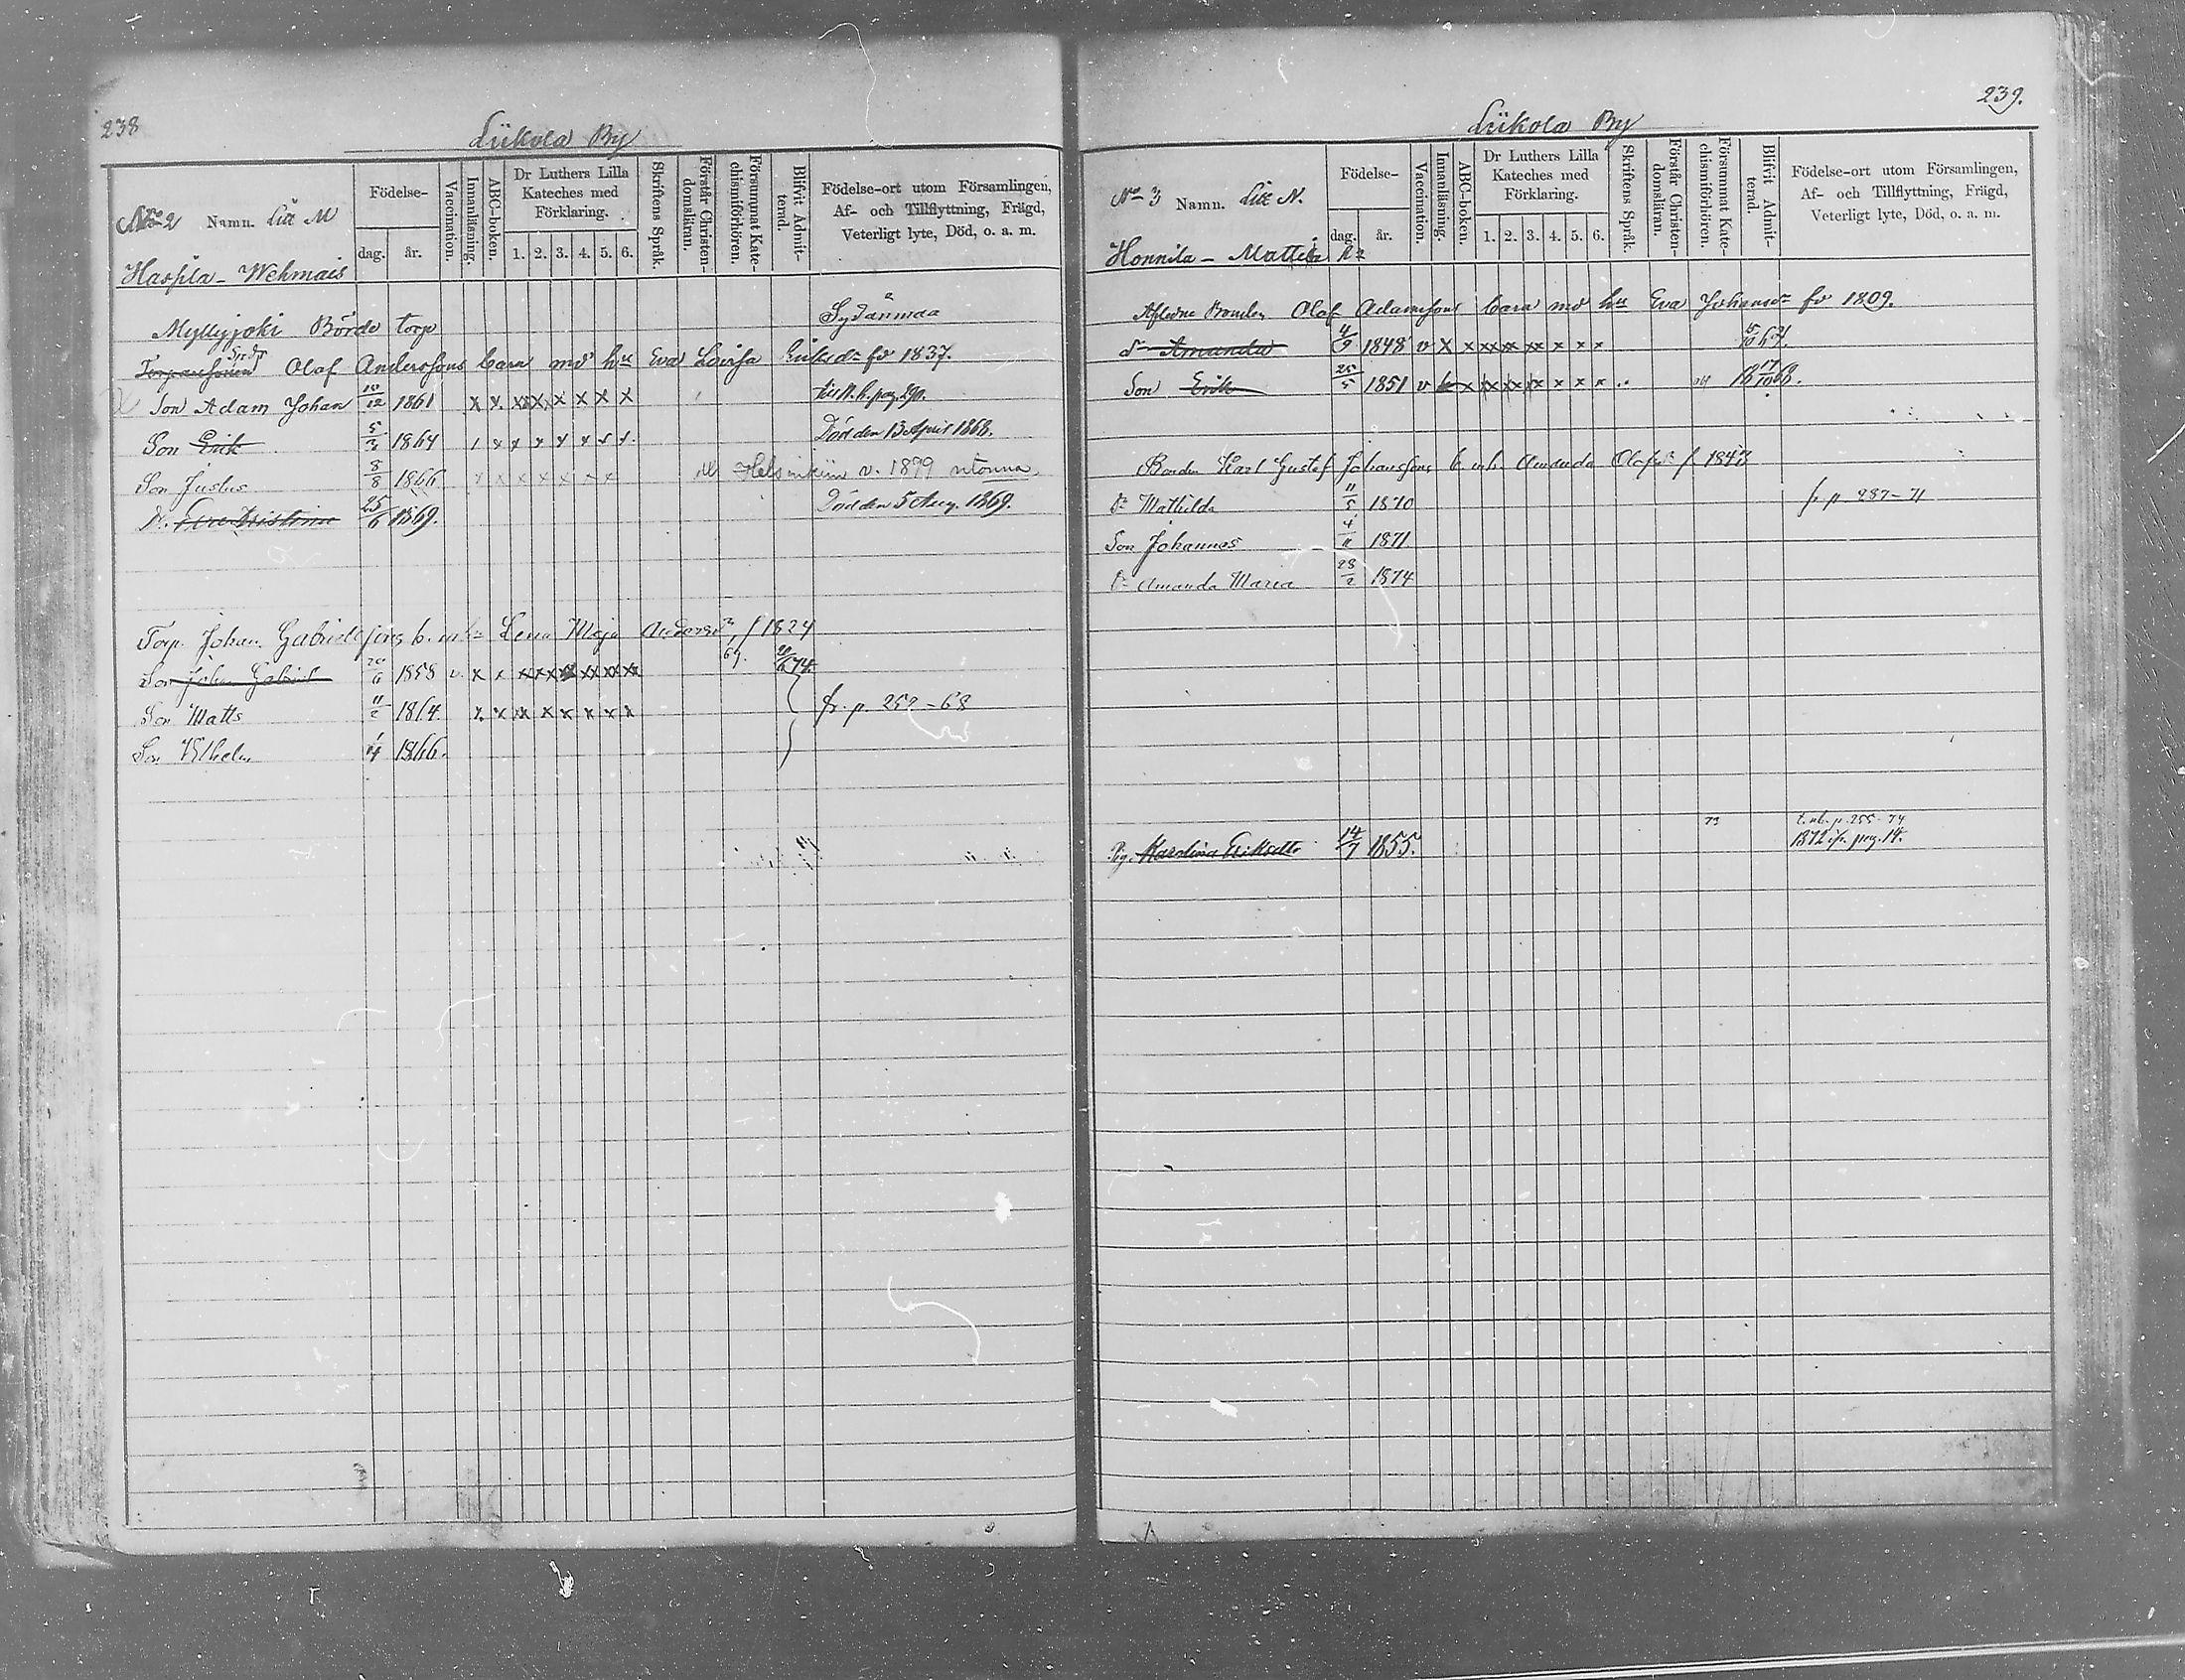 238
Liikola By
No 2 Namn. Litt M
Födelse-
dag. år.
Vaccination.
Innanläsning.
ABC-boken.
Dr Luthers Lilla Kateches med Förklaring.
1. 2. 3. 4. 5. 6.
Skriftens Språk.
Förstår Christendomsläran.
Försummat Katechismiförhören.
Blifvit Admitterad.
Födelse-ort utom Församlingen, Af- och Tillflyttning, Frägd, Veterligt lyte, Död, o. a. m.
Haspila - Wehmais
Myllyjoki Börde torp Sydänmaa
Olof Anderssons barn md hu Eva Lovisa Eriksdr fö 1837.
Son Adam Johan 10/12 1861 x x x x x x x x N.b. pag. 290.
Son Erik 5/3 1864 Död den 13 April 1868.
Son Justus 8/8 1866 x x x x x x x Helsinkiin v. 1899 ulonna
D. Eva Kristina 25/6 1869. Död den 5 Aug. 1869.
Torp. Johan Gabrielssons b. m. h. Lena Maja Andersdr f 1824
Son Johan Gabriel 20/6 1858 v x x x x x x x x 69. 74.
Son Matts 11/2 1864 x x x x x x x x fr. p. 259-68
Son Wilhelm 1/4 1866.
239.
Liikola By
No 3 Namn. Litt N.
Födelse-
dag. år.
Vaccination.
Innanläsning.
ABC-boken.
Dr Luthers Lilla Kateches med Förklaring.
1. 2. 3. 4. 5. 6.
Skriftens Språk.
Förstår Christendomsläran.
Försummat Katechismiförhören.
Blifvit Admitterad.
Födelse-ort utom Församlingen, Af- och Tillflyttning, Frägd, Veterligt lyte, Död, o. a. m.
Honnila - Mattila
Aflidne Bonden Olof Adamssons barn md hu Eva Johansdr fö 1809.
dr Amanda 4/9 1848 v x x x x x x x x 5/10 67.
Son Erik 25/5 1851 v x x x x x x x 18 17/10 68.
Bonden Karl Gustaf Johanssons b. m h. Amanda Olofsdr f 1848
Dr Mathilda 11/5 1870 fr p 237-71
Son Johannes 4/11 1871
Dr Amanda Maria 28/2 1874
73 t. nb. p. 255-74
Pig. Karolina Eriksdtr 14/7 1855. 1872 ifr. pag. 14.